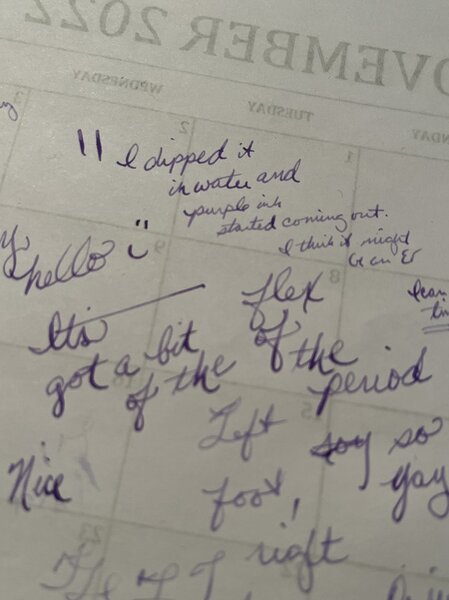 NOVEMBER 2022
WEDNESDAY
TUESDAY
3
2
1
" I dipped it
in water and
purple ink
started coming out.
I think it might
hello
9
8
flex
Its
of
got a bit
the
of the
period
15
Left
so
Nice
foot,
gay
right
23